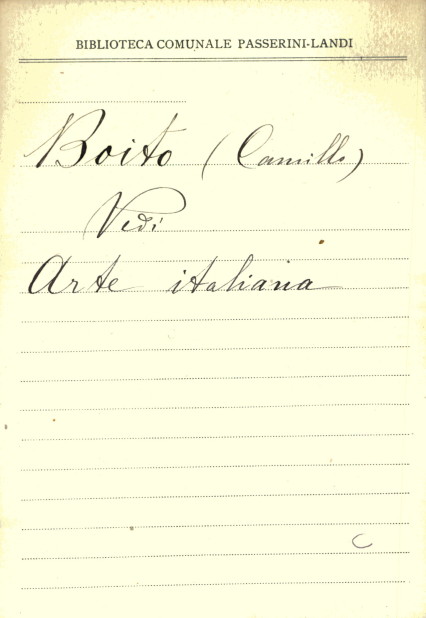 BIBLIOTECA COMUNALE PASSERINI-LANDI
Boito (Camillo)
Vedi
Arte italiana
C